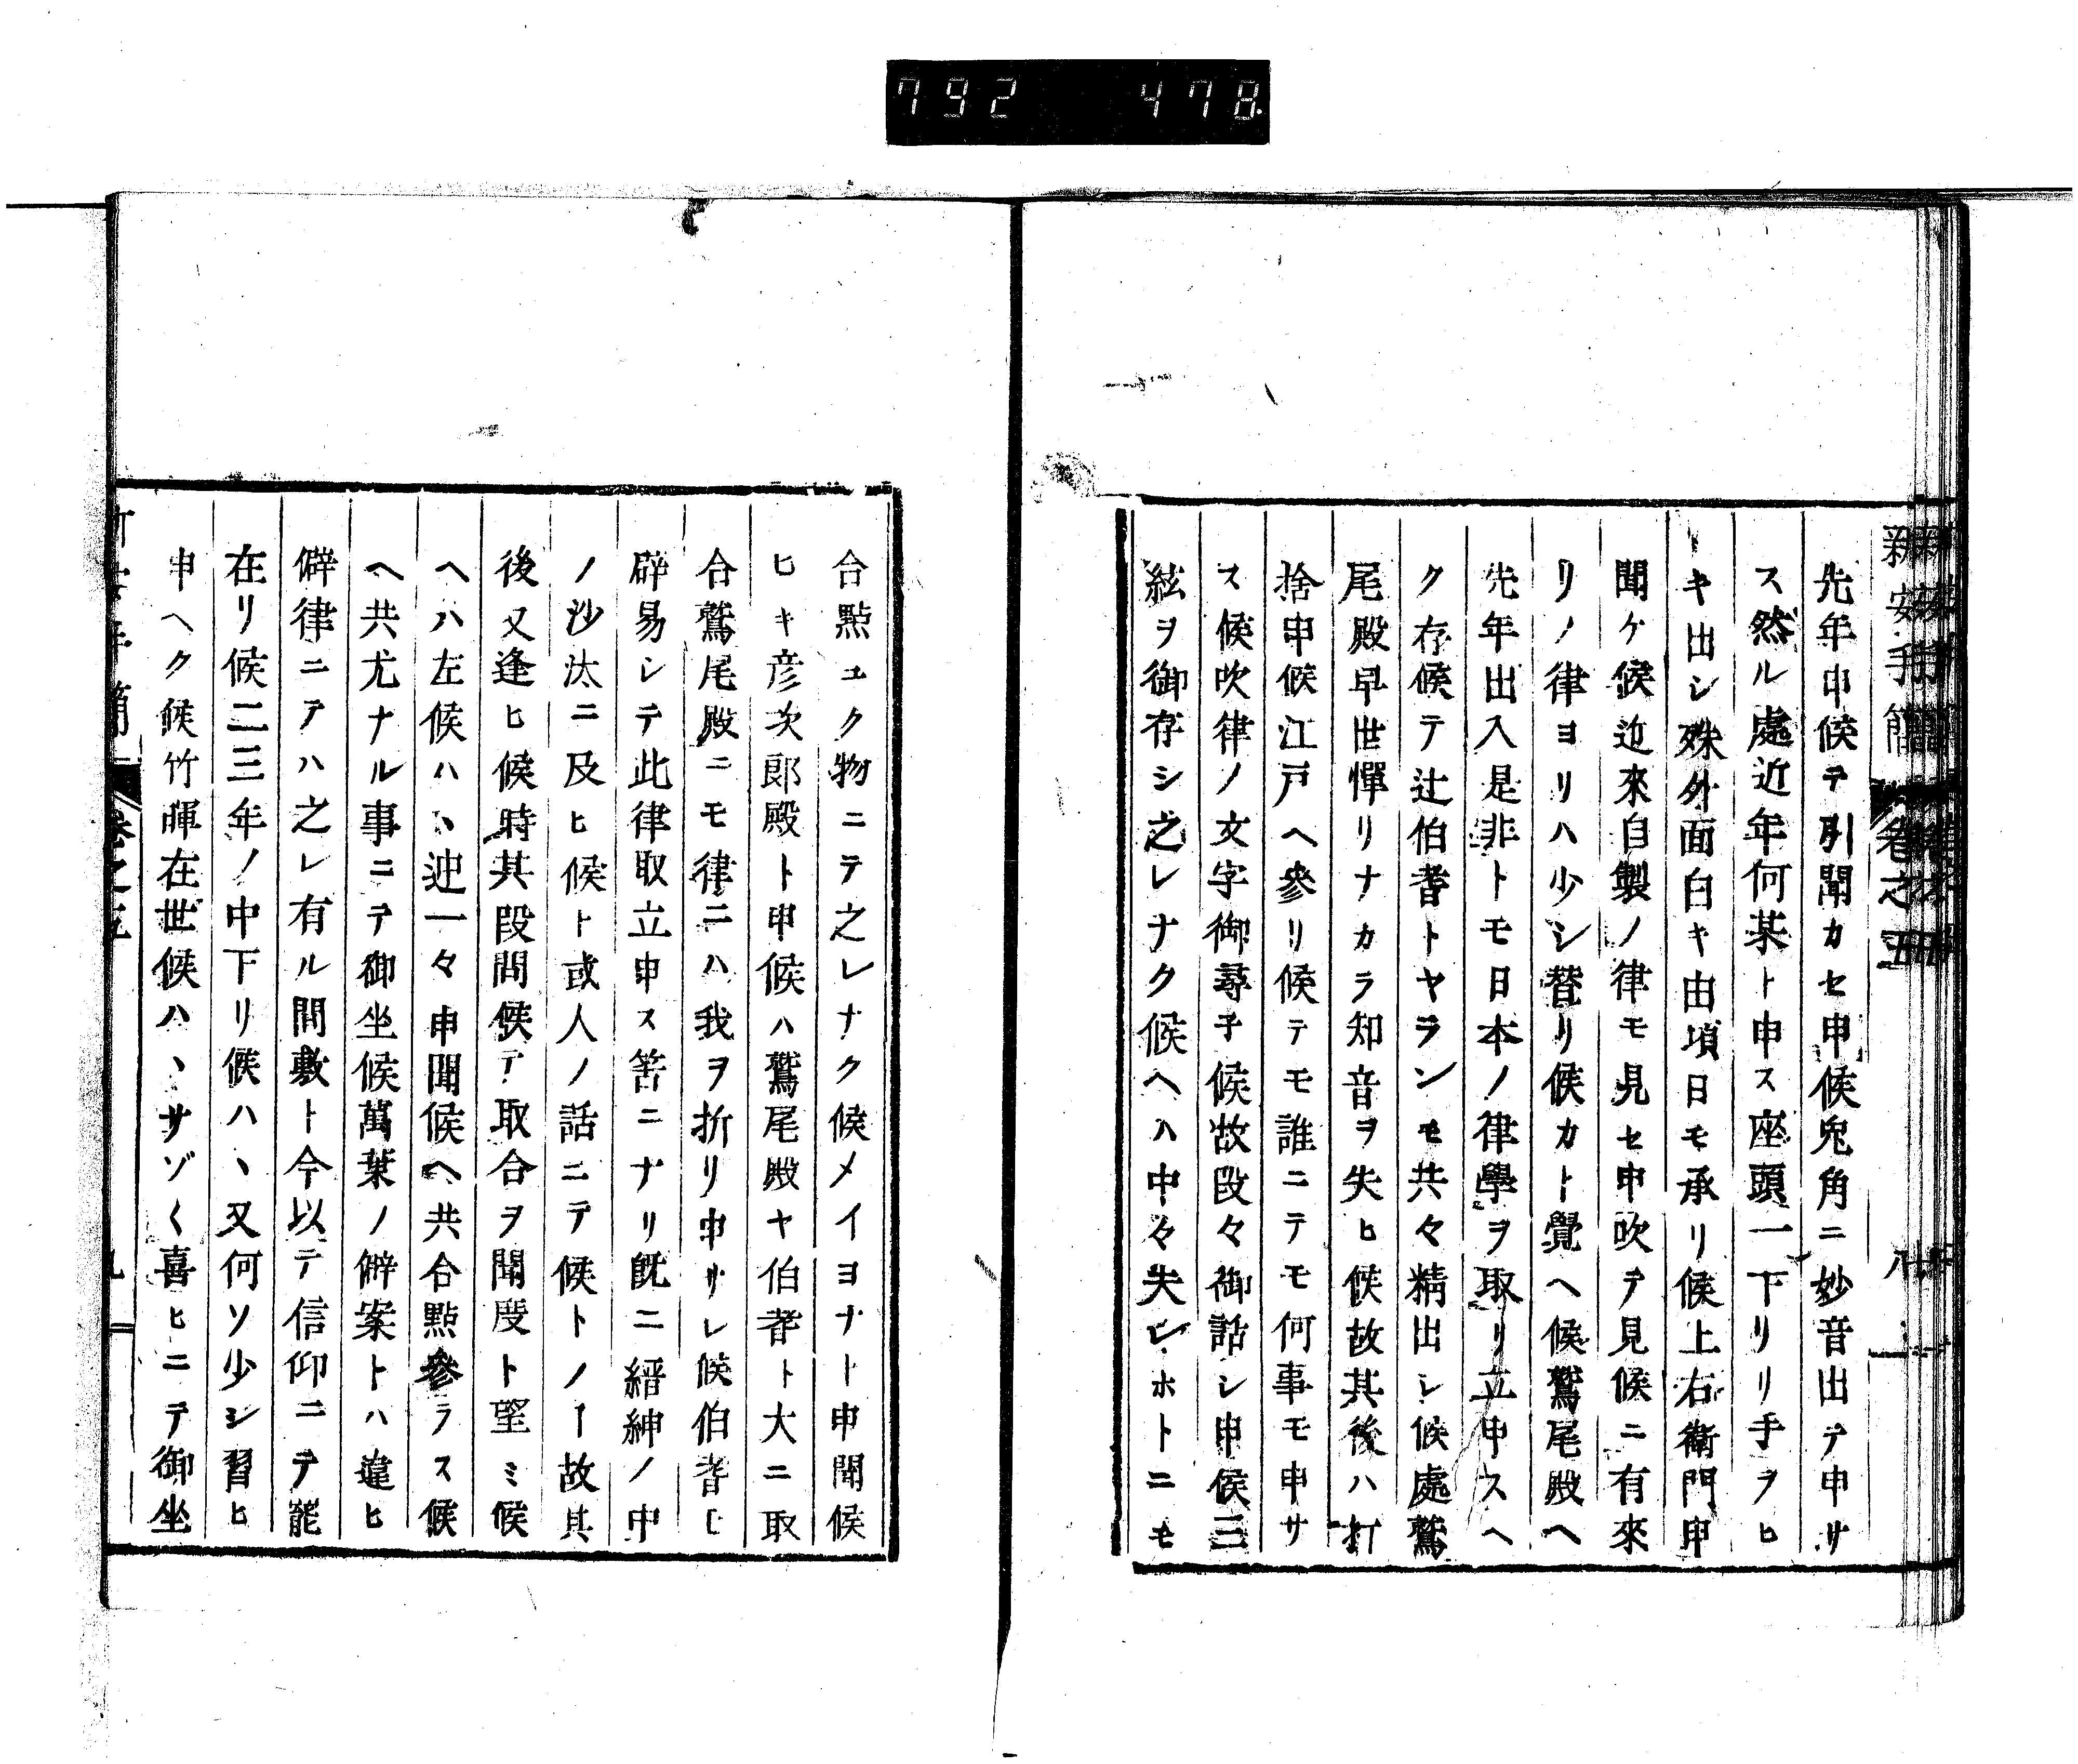 792 478
新安手簡 卷之五 八
先年申候テ引聞カセ申候兎角ニ妙音出テ申サ
ス然ル處近年何某ト申ス座頭一下リリ手ヲヒ
キ出シ殊外面白キ由頃日モ承リ候上右衞門申
聞ケ候近來自製ノ律モ見セ申吹テ見候ニ有來
リノ律ヨリハ少シ替リ候カト覺ヘ候鷲尾殿ヘ
先年出入是非トモ日本ノ律學ヲ取リ立申スヘ
ク存候テ辻伯耆トヤランモ共々精出シ候處鷲
尾殿早世憚リナカラ知音ヲ失ヒ候故其後ハ打
捨申候江戸ヘ參リ候テモ誰ニテモ何事モ申サ
ス候吹律ノ文字御尋子候故段々御話シ申候三
絃ヲ御存シ之レナク候ヘハ中々失レホトニモ
合點ユク物ニテ之レナク候メイヨナト申聞候
ヒキ彦次郎殿ト申候ハ鷲尾殿ヤ伯耆ト大ニ取
合鷲尾殿ニモ律ニハ我ヲ折リ申サレ候伯耆モ
辟易シテ此律取立申ス筈ニナリ既ニ縉紳ノ中
ノ沙汰ニ及ヒ候ト或人ノ話ニテ候トノヿ故其
後又逢ヒ候時其段問候テ取合ヲ聞度ト望ミ候
ヘハ左候ハヽ迚一々申聞候ヘ共合點參ラス候
ヘ共尤ナル事ニテ御坐候萬葉ノ僻案トハ違ヒ
僻律ニテハ之レ有ル間敷ト今以テ信仰ニテ罷
在リ候二三年ノ中下リ候ハヽ又何ソ少シ習ヒ
申ヘク候竹暉在世候ハヽサゾ〱喜ヒニテ御坐
卷之五